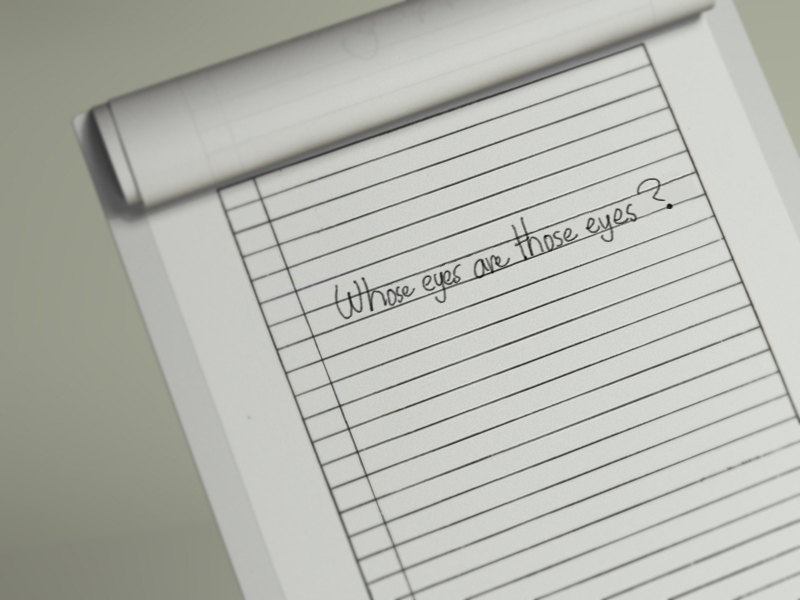 Whose eyes are those eyes?